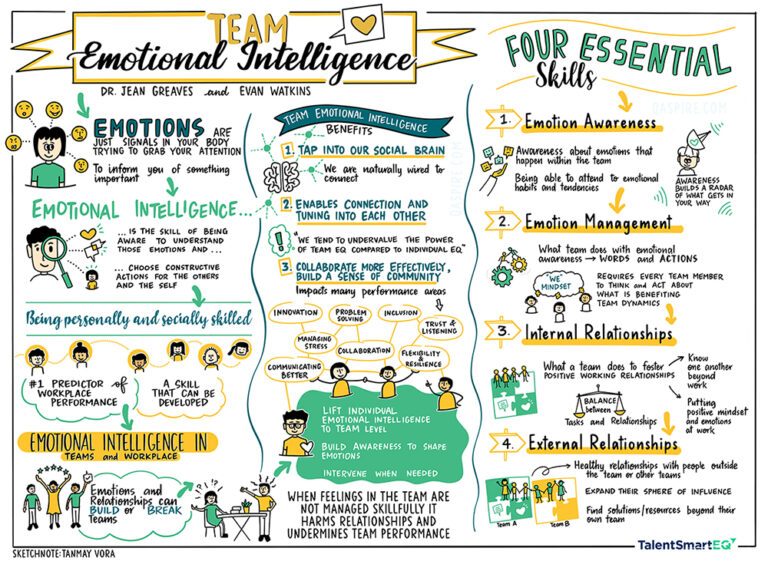 TEAM
Emotional Intelligence
DR. JEAN GREAVES and EVAN WATKINS
EMOTIONS ARE
JUST SIGNALS IN YOUR BODY
TRYING TO GRAB YOUR ATTENTION
To inform you of something
important
EMOTIONAL INTELLIGENCE...
... IS THE SKILL OF BEING
AWARE TO UNDERSTAND
THOSE EMOTIONS AND ...
... CHOOSE CONSTRUCTIVE
ACTIONS FOR THE OTHERS
AND THE SELF
Being personally and socially skilled
#1 PREDICTOR of
WORKPLACE
PERFORMANCE
A SKILL
THAT CAN BE
DEVELOPED
EMOTIONAL INTELLIGENCE IN
TEAMS and WORKPLACE
Emotions and
Relationships can
BUILD or BREAK
teams
!?!
SKETCHNOTE: TANMAY VORA
TEAM EMOTIONAL INTELLIGENCE
BENEFITS
1. TAP INTO OUR SOCIAL BRAIN
We are naturally wired to
connect
2. ENABLES CONNECTION AND
TUNING INTO EACH OTHER
"WE TEND TO UNDERVALUE THE POWER
OF TEAM EQ COMPARED TO INDIVIDUAL EQ."
3. COLLABORATE MORE EFFECTIVELY,
BUILD A SENSE OF COMMUNITY
Impacts many performance areas
INNOVATION
PROBLEM
SOLVING
INCLUSION
TRUST &
LISTENING
MANAGING
STRESS
COLLABORATION
FLEXIBILITY
& RESILIENCE
COMMUNICATING
BETTER
LIFT INDIVIDUAL
EMOTIONAL INTELLIGENCE
TO TEAM LEVEL
BUILD AWARENESS TO SHAPE
EMOTIONS
INTERVENE WHEN NEEDED
WHEN FEELINGS IN THE TEAM ARE
NOT MANAGED SKILLFULLY IT
HARMS RELATIONSHIPS AND
UNDERMINES TEAM PERFORMANCE
QASPIRE.COM
FOUR ESSENTIAL
Skills
QASPIRE.COM
1. Emotion Awareness
Awareness about emotions that
happen within the team
Being able to attend to emotional
habits and tendencies
AWARENESS
BUILDS A RADAR
OF WHAT GETS IN
YOUR WAY
2. Emotion Management
What team does with emotional
awareness → WORDS and ACTIONS
'WE'
MINDSET
REQUIRES EVERY TEAM MEMBER
TO THINK and ACT ABOUT
WHAT IS BENEFITING
TEAM DYNAMICS
3. Internal Relationships
What a team does to foster
POSITIVE WORKING RELATIONSHIPS
Know
one another
beyond
work
Putting
positive mindset
and emotions
at work
BALANCE
between
Tasks and Relationships
4. External Relationships
Healthy relationships with people outside
the team or other teams
EXPAND THEIR SPHERE OF INFLUENCE
Find solutions/resources beyond their
own team
Team A
Team B
TalentSmartEQ